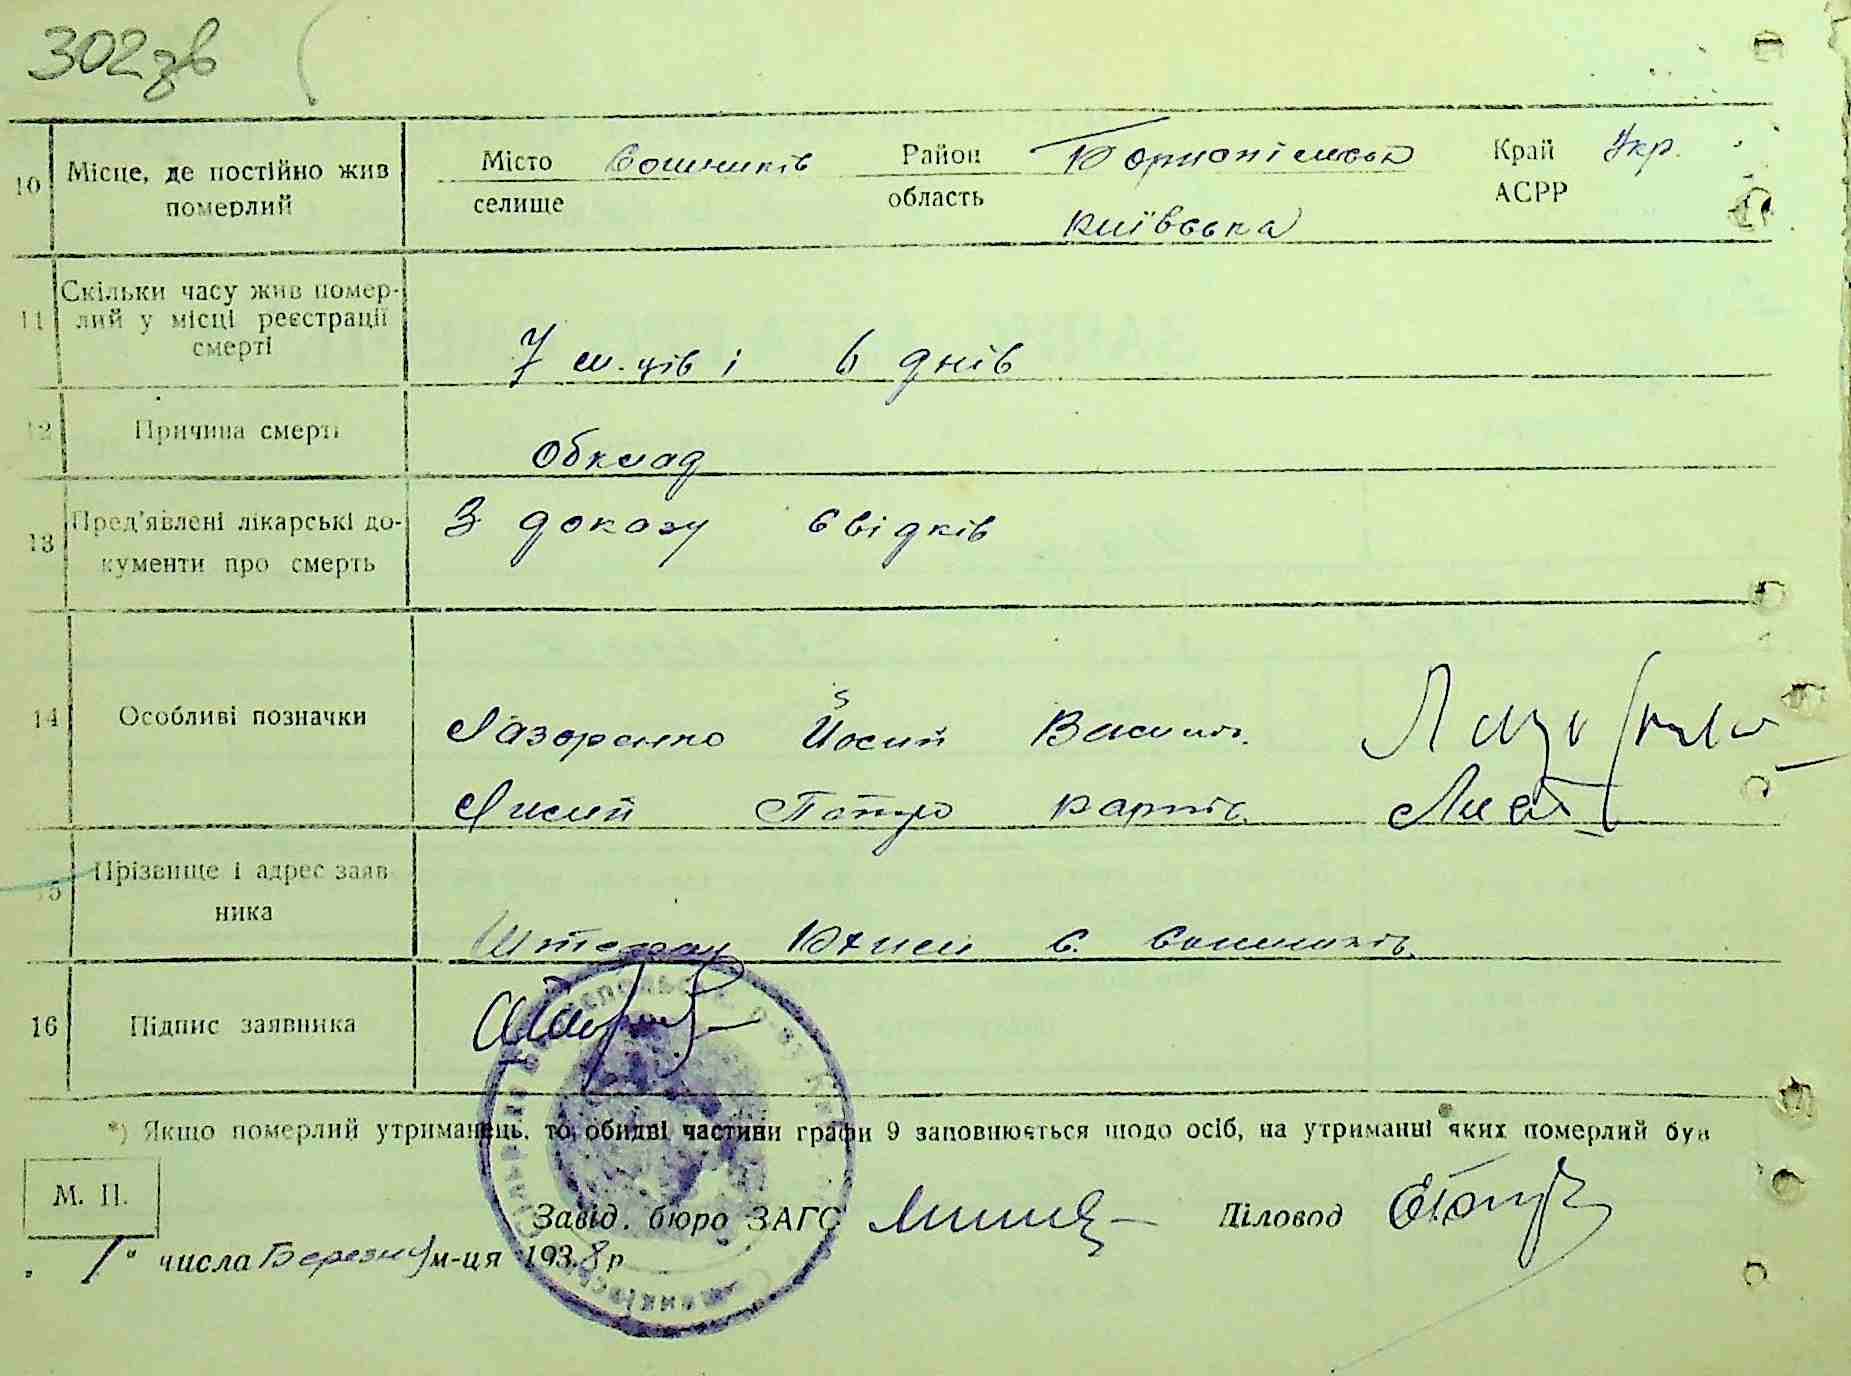 302зв
10 Місце, де постійно жив померлий Місто селище Сошників Район область Бориспільськ Київська Край АСРР Укр.
11 Скільки часу жив помер-
лий у місці реєстрації
смерті
7 м.ців і 6 днів
12 Причина смерті Обклад
13 Пред'явлені лікарські до-
кументи про смерть
З доказу свідків
14 Особливі позначки
Лазоренко Йосип Васильов.
Лисий Петро Карпів.
15 Прізвище і адрес заяв
ника
с. Сошників.
16 Підпис заявника
*) Якщо померлий утриманець, то обидві частини графи 9 заповнюється щодо осіб, на утриманні яких померлий був
М. П.
Завід. бюро ЗАГС Діловод
„1" числа Березня м-ця 1938 р